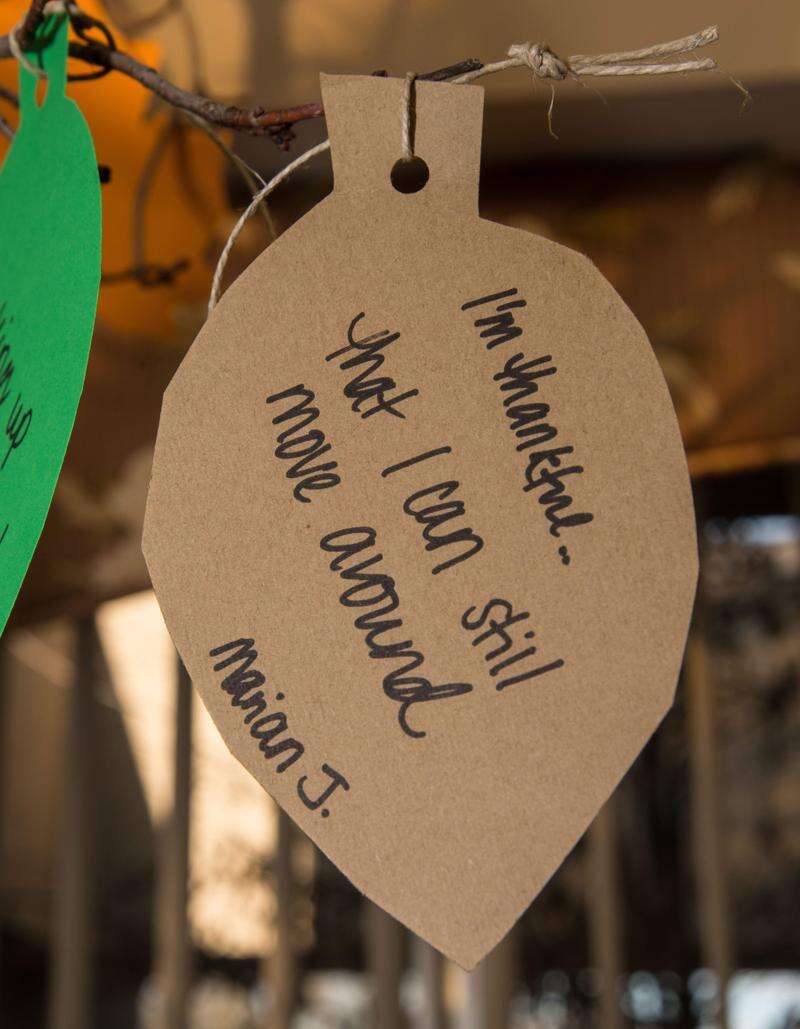 I'm thankful..
that I can still
move around
Marian J.
up